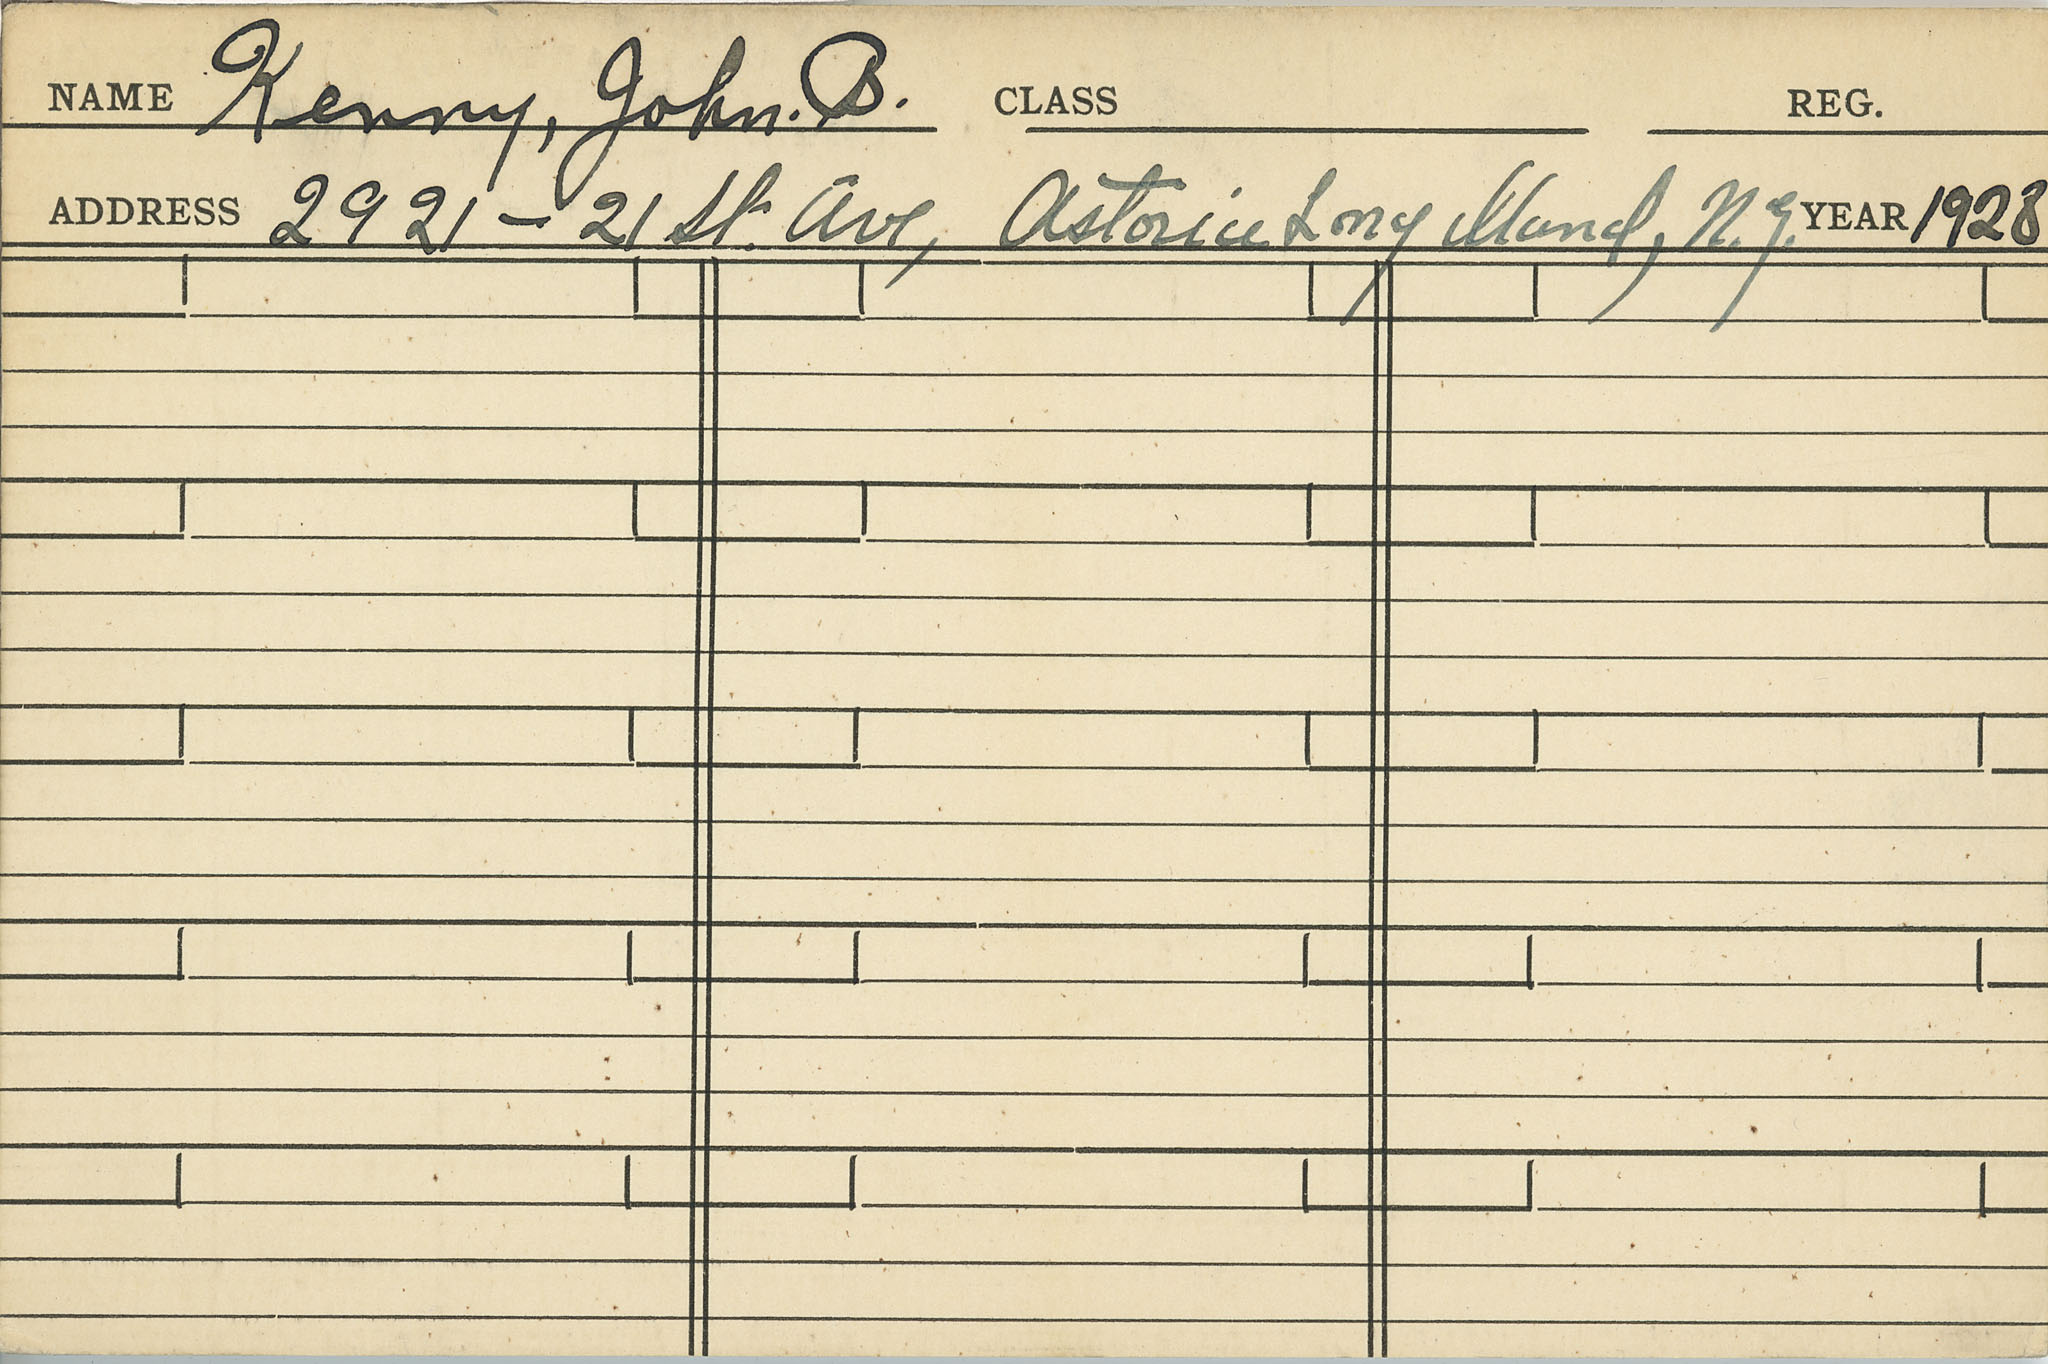 NAME Kenny, John. B. CLASS REG.
ADDRESS 2921 - 21 St. Ave, Astoria Long Island, N.Y. YEAR 1928